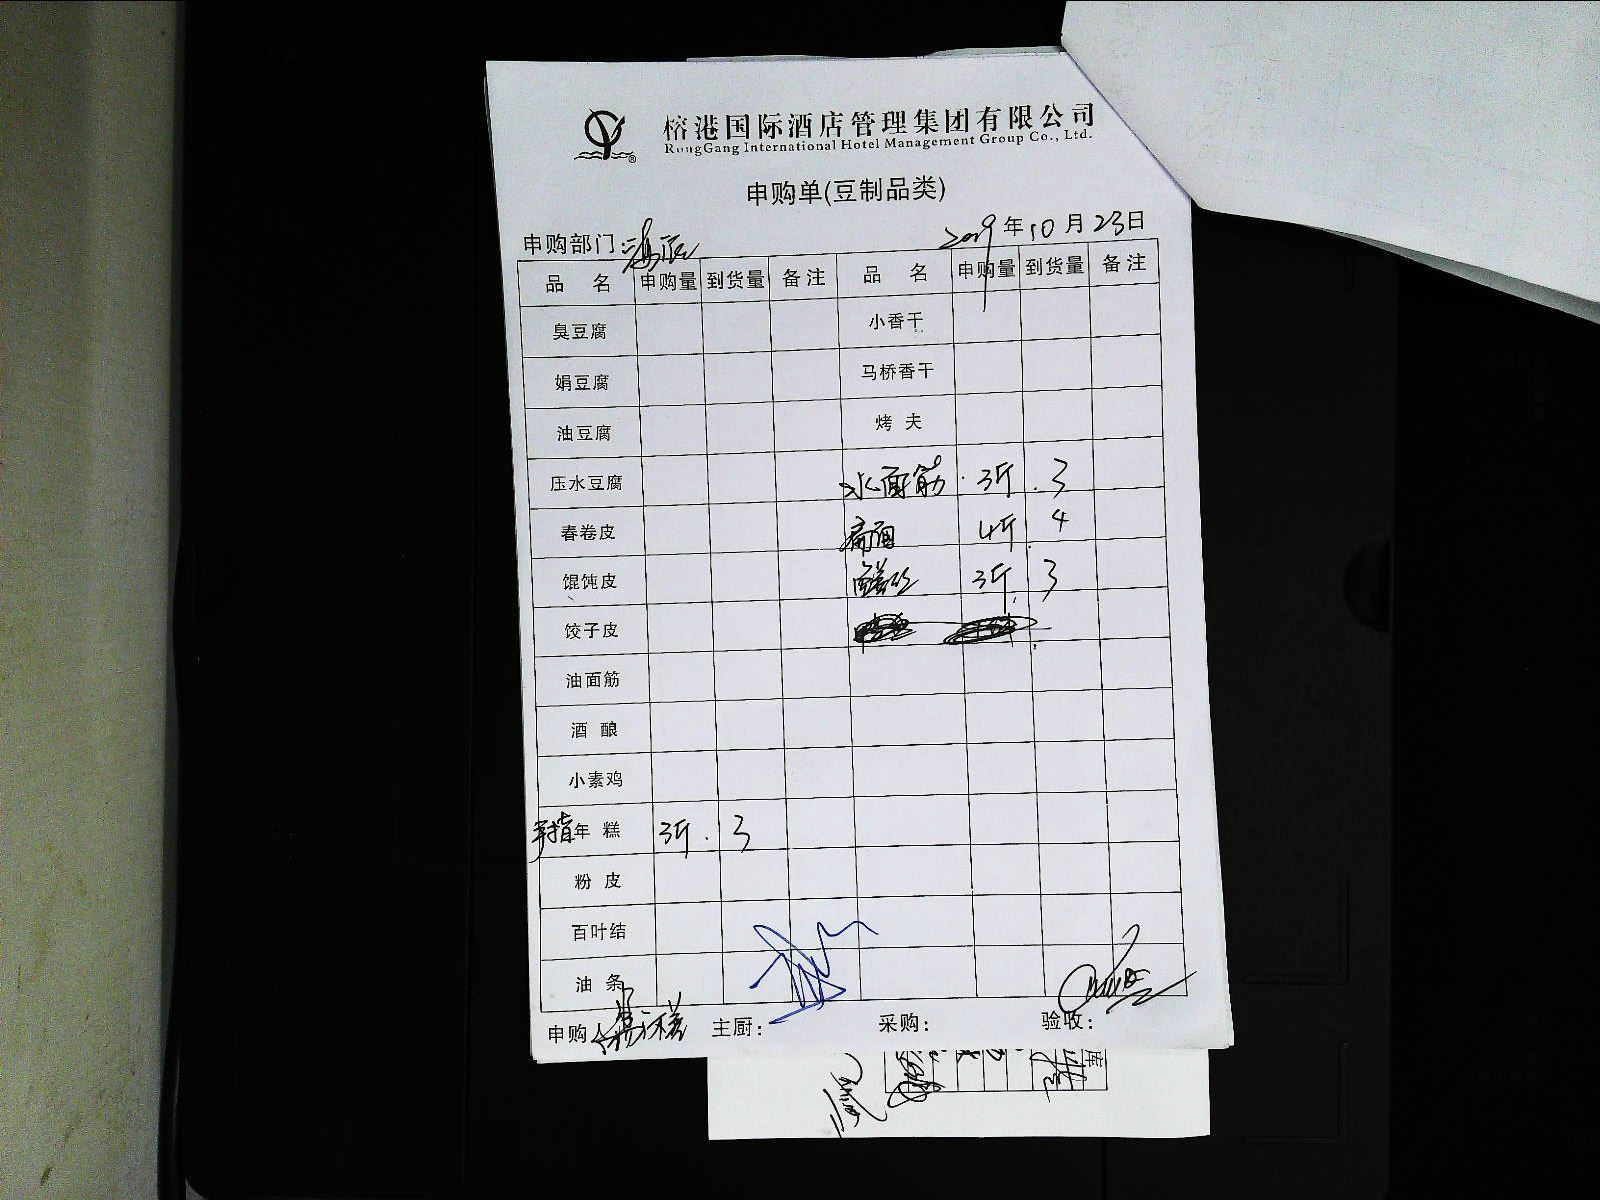 榕港国际酒店管理集团有限公司
RongGang International Hotel Management Group Co., Ltd.
申购单(豆制品类)
申购部门: 2019年10月23日
品 名 申购量 到货量 备注 品 名 申购量 到货量 备注
臭豆腐 小香干
娟豆腐 马桥香干
油豆腐 烤 夫
压水豆腐 水面筋 3斤 3
春卷皮 扁面 4斤 4
馄饨皮 3斤 3
饺子皮
油面筋
酒 酿
小素鸡
手指年 糕 3斤 3
粉 皮
百叶结
油 条
申购人 主厨: 采购: 验收:
库